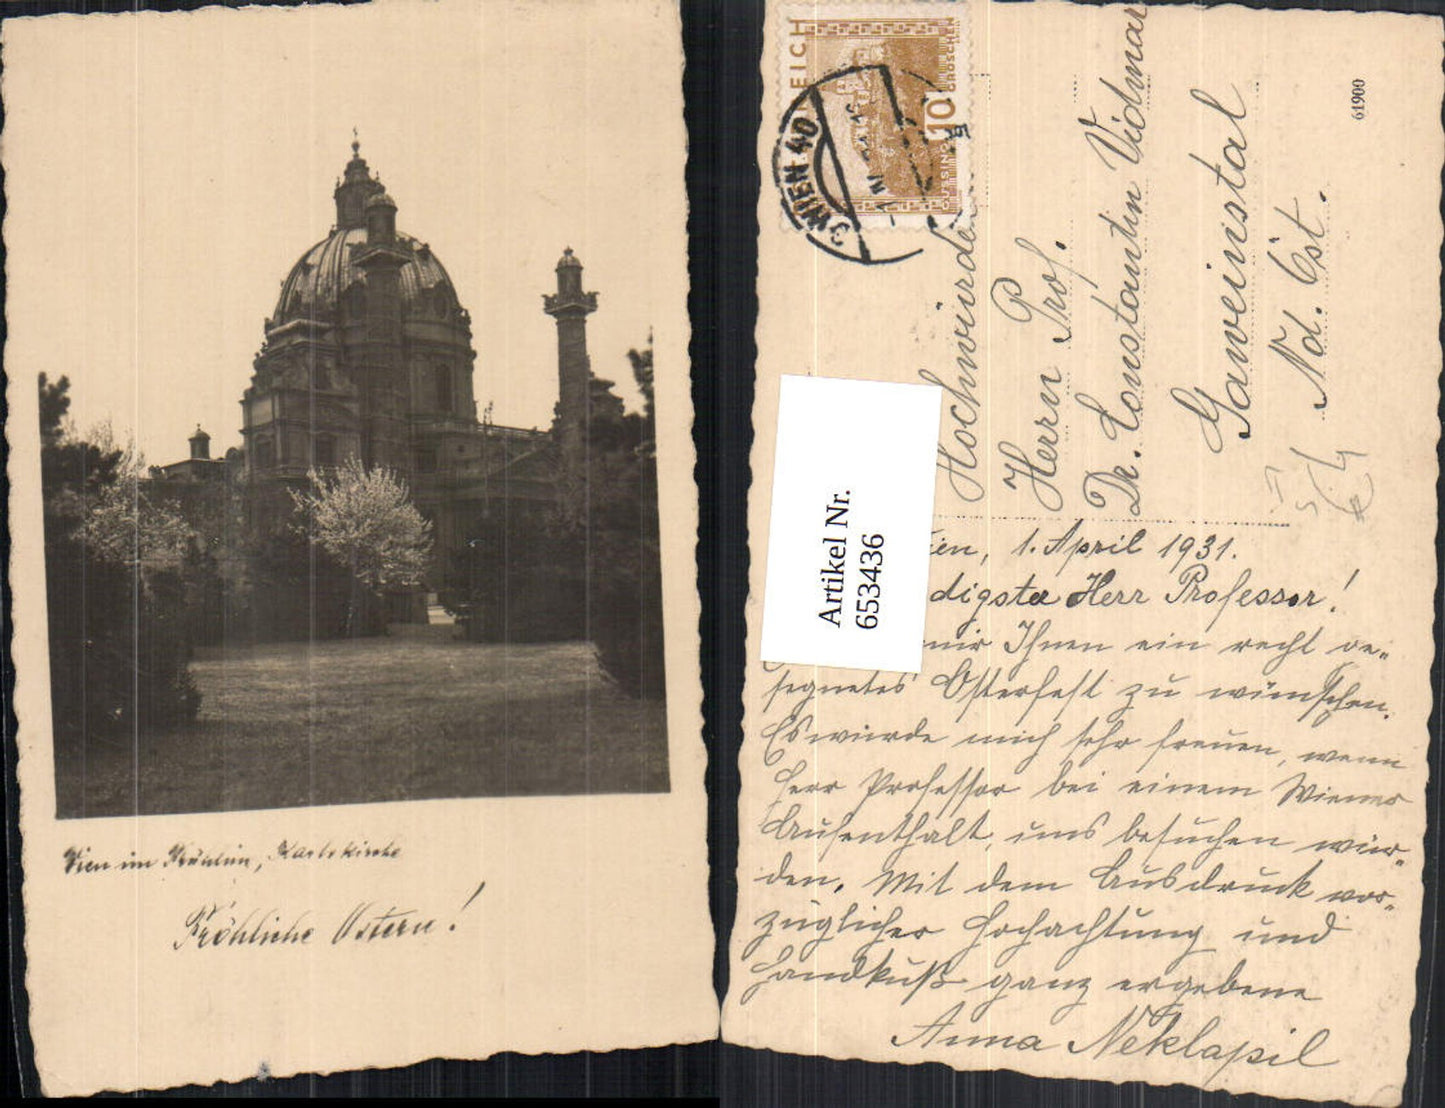 Wien im Frühling, Karlskirche
Fröhliche Ostern!
REICH
10
GROSCHEN
GÜSSING
WIEN 40
61900
Hochwürden
Herrn Prof.
Dr. Constantin Vidmar
Gaweinstal
Nd. Öst.
Artikel Nr.
653436
ien, 1. April 1931.
digster Herr Professor!
mir Ihnen ein recht ge-
segnetes Osterfest zu wünschen.
Es würde mich sehr freuen, wenn
Herr Professor bei einem Wiener
Aufenthalt, uns besuchen wür-
den. Mit dem Ausdruck vor-
züglicher Hochachtung und
Handkuß ganz ergebene
Anna Neklapil